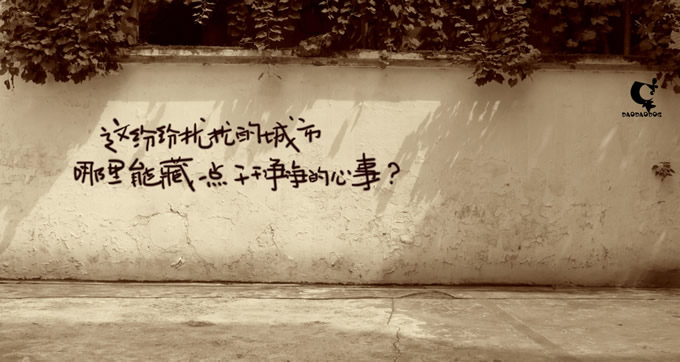 这纷纷扰扰的城市
哪里能藏一点干干净净的心事？
DAODAODOG